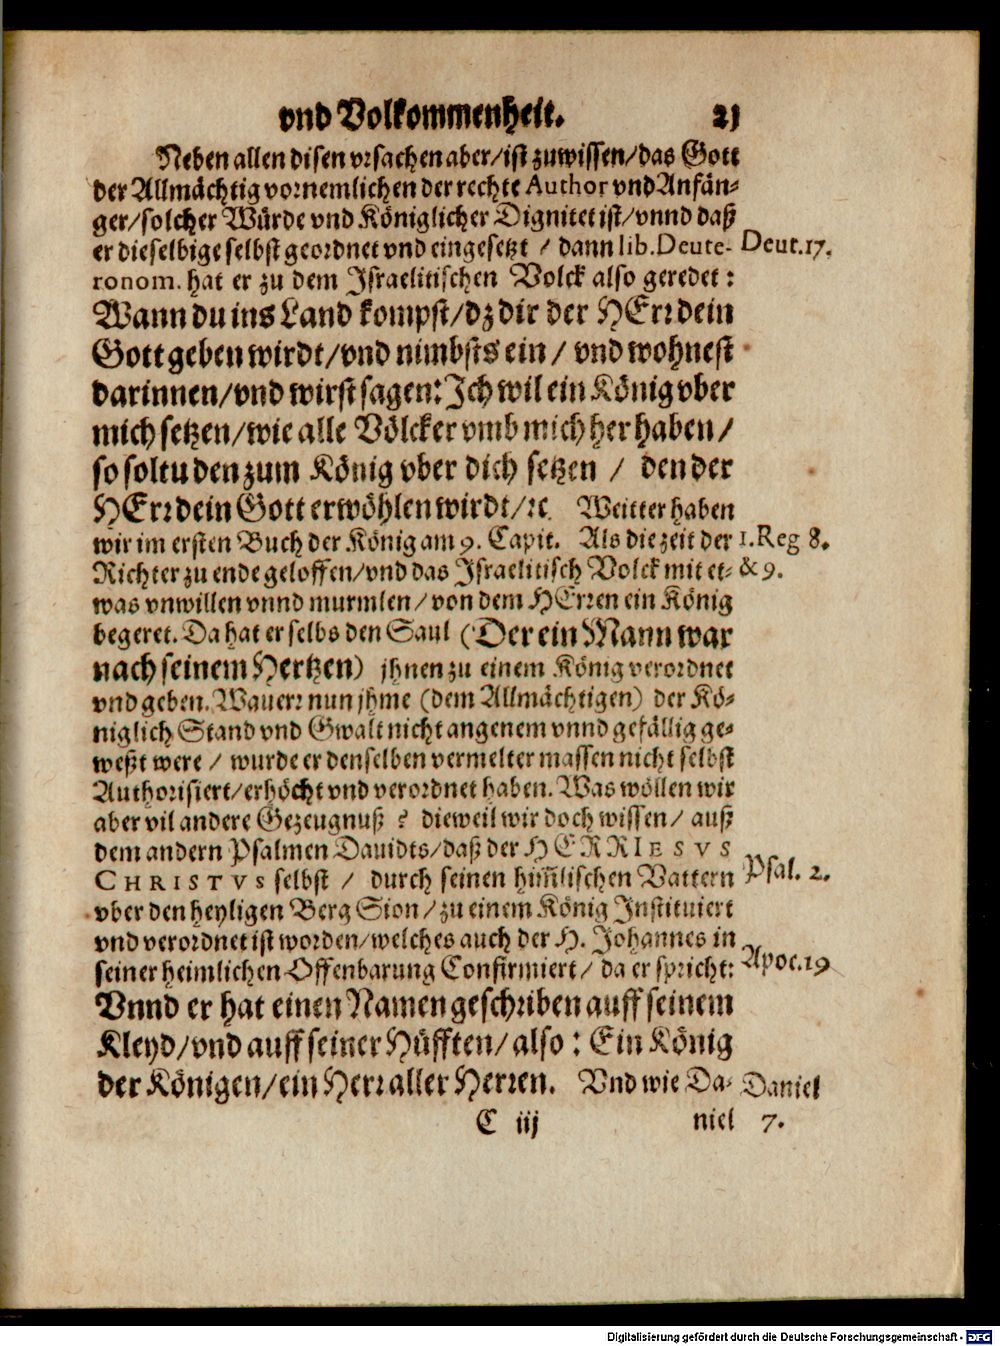 vnd Volkommenheit. 21
Neben allen disen vrsachen aber/ist zuwissen/das Gott
der Allmächtig vornemlichen der rechte Author vnd Anfän-
ger/solcher Würde vnd Königlicher Dignitet ist/vnnd daß
er dieselbige selbst geordnet vnd eingesetzt / dann lib. Deute- Deut. 17.
ronom. hat er zu dem Israelitischen Volck also geredet:
Wann du ins Land kompst/dz dir der HErr dein
Gott geben wirdt/vnd nimbsts ein / vnd wohnest
darinnen/vnd wirst sagen: Ich wil ein König vber
mich setzen/wie alle Völcker vmb mich her haben/
so soltu den zum König vber dich setzen / den der
HErr dein Gott erwöhlen wirdt/ꝛc. Weitter haben
wir im ersten Buch der König am 9. Capit. Als die zeit der 1. Reg 8.
Richter zu ende geloffen/vnd das Israelitisch Volck mit et- & 9.
was vnwillen vnnd murmlen/von dem HErren ein König
begeret. Da hat er selbs den Saul (Der ein Mann war
nach seinem Hertzen) jhnen zu einem König verordnet
vnd geben. Wauerr nun jhme (dem Allmächtigen) der Kö-
niglich Stand vnd Gwalt nicht angenem vnnd gefällig ge-
weßt were / wurde er denselben vermelter massen nicht selbst
Authorisiert/erhöcht vnd verordnet haben. Was wöllen wir
aber vil andere Gezeugnuß ? dieweil wir doch wissen/ auß
dem andern Psalmen Dauidts/daß der HERR IESVS
CHRISTVS selbst / durch seinen him̃lischen Vattern Psal. 2.
vber den heyligen Berg Sion/zu einem König Instituiert
vnd verordnet ist worden/welches auch der H. Johannes in
seiner heimlichen Offenbarung Confirmiert/ da er spricht: Apoc. 19
Vnnd er hat einen Namen geschriben auff seinem
Kleyd/vnd auff seiner Hüfften/also: Ein König
der Königen/ein Herr aller Herren. Vnd wie Da- Daniel
C iij niel 7.
Digitalisierung gefördert durch die Deutsche Forschungsgemeinschaft - DFG